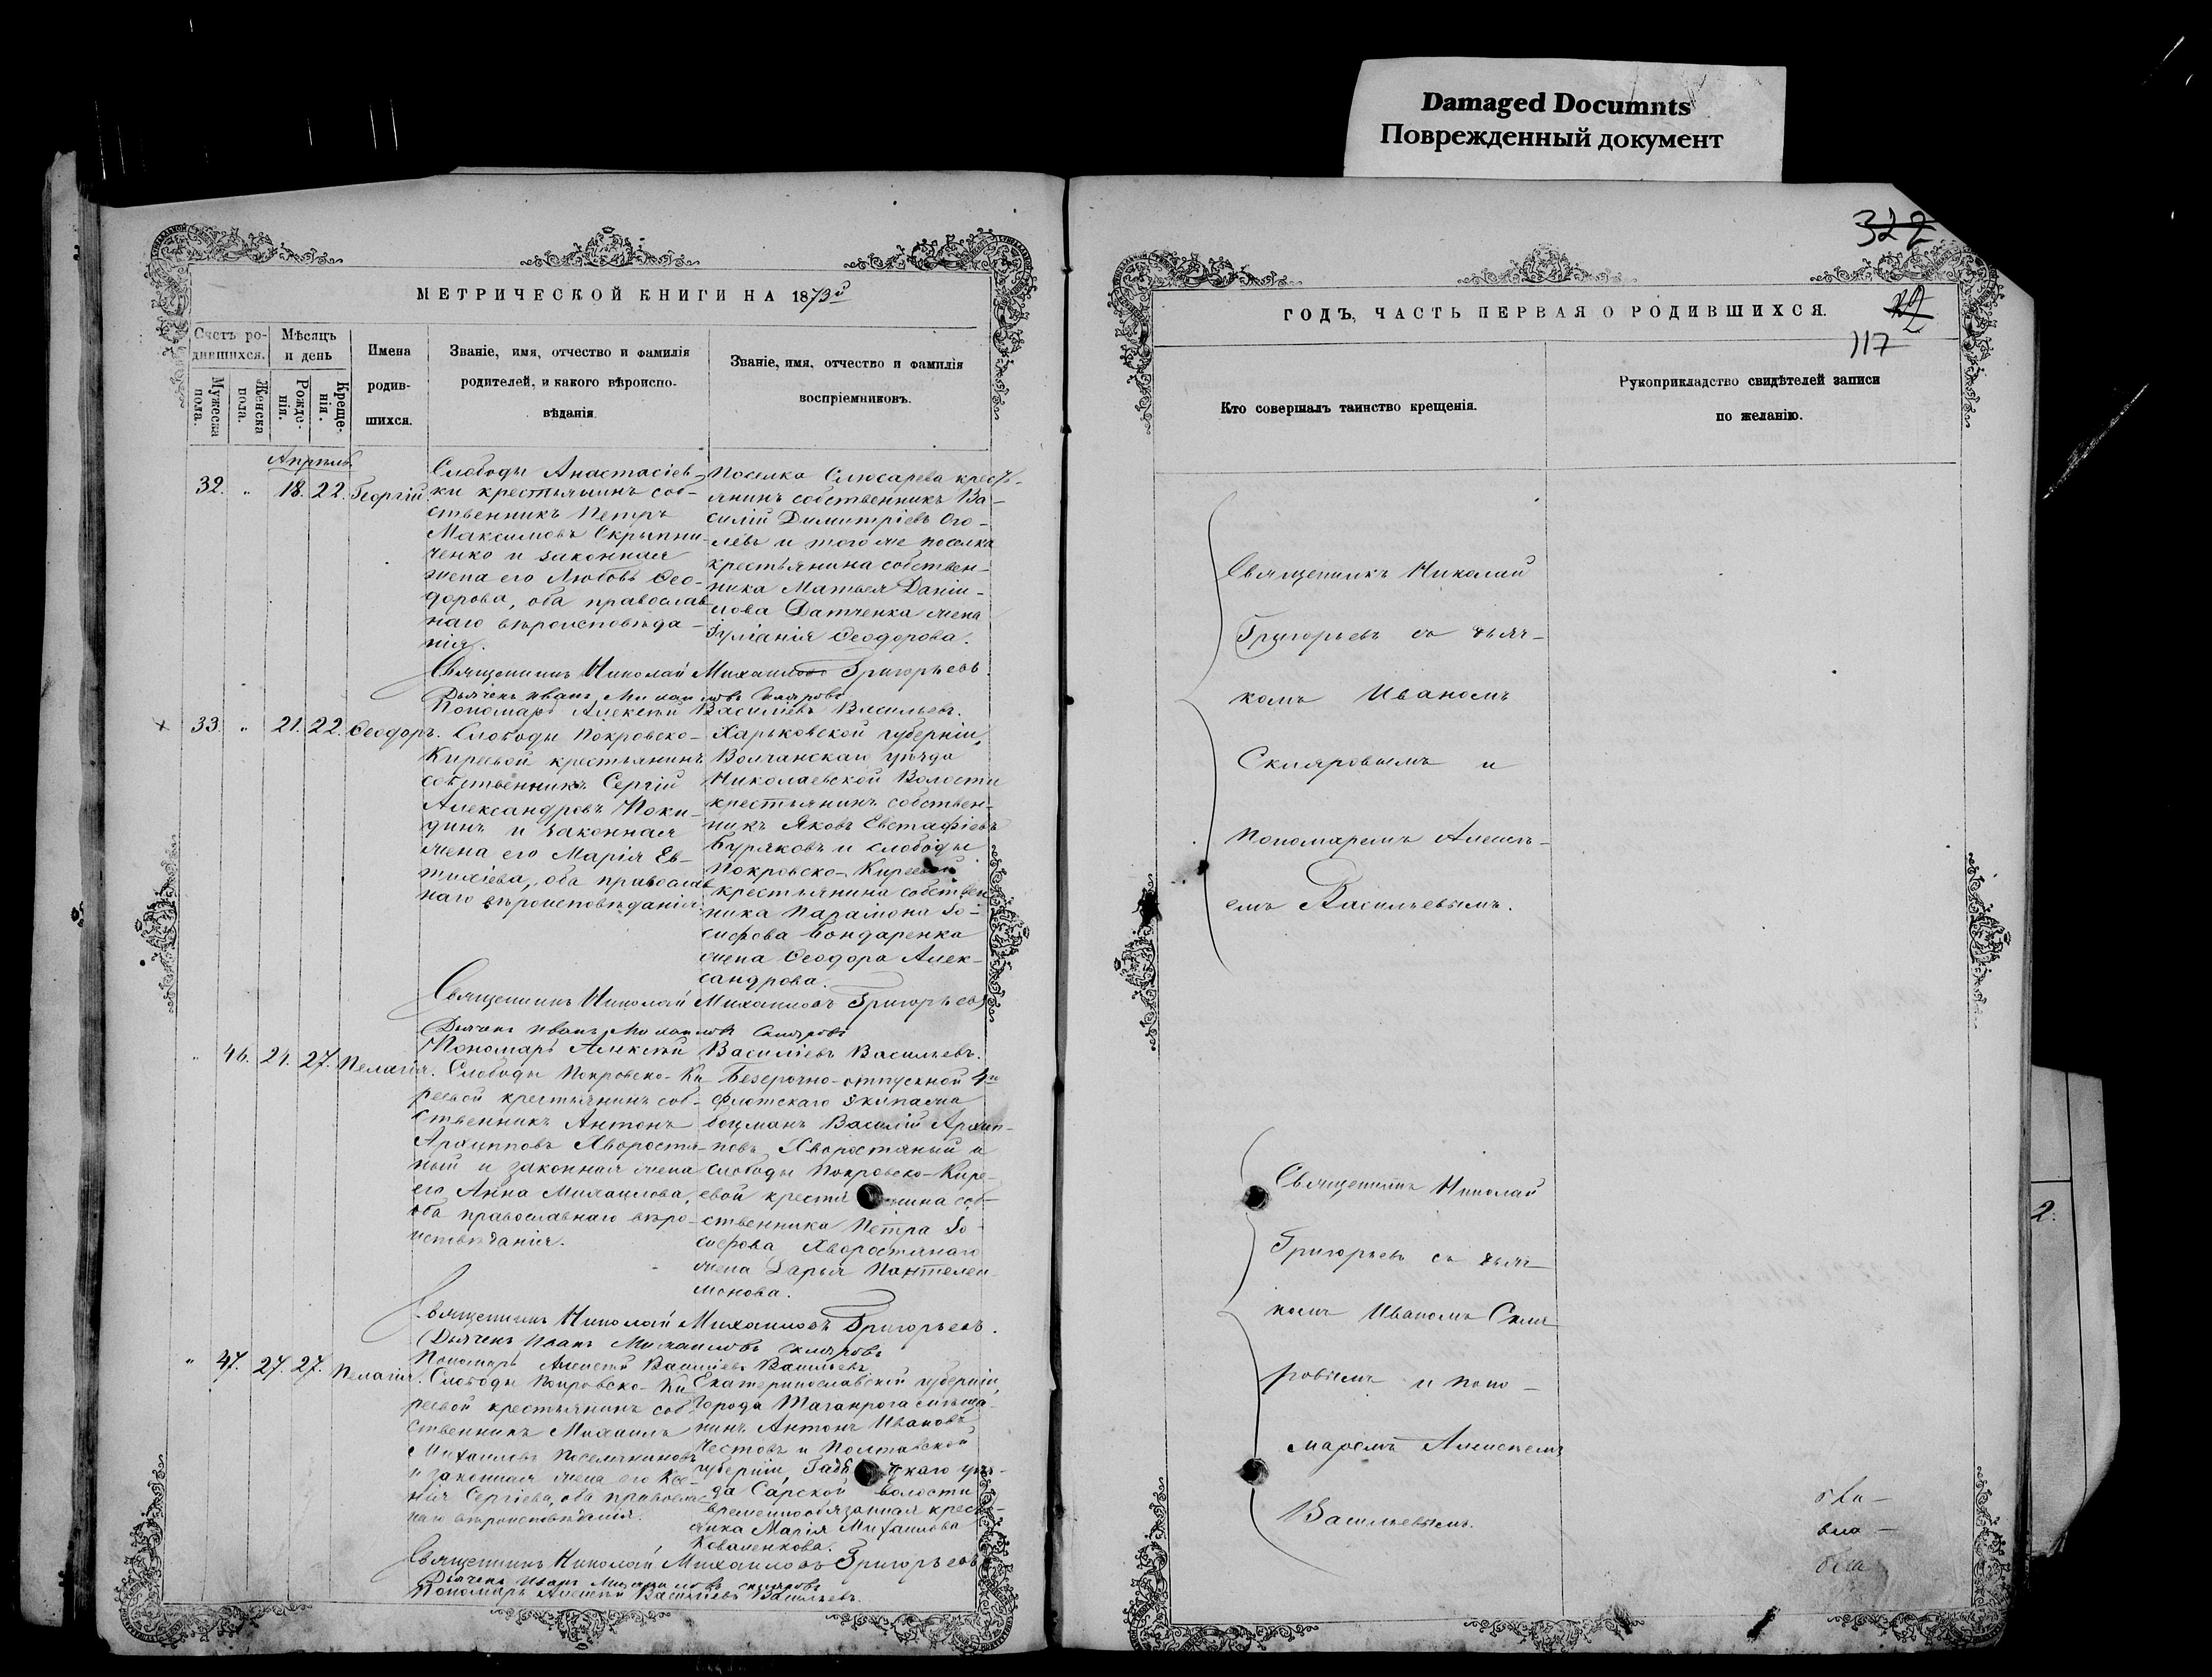 Damaged Documnts
Поврежденный документ
МЕТРИЧЕСКОЙ КНИГИ НА 1873й
Счетъ ро-
дившихся.
Мѣсяцъ
и день
Мужеска
пола.
Женска
пола.
Рожде-
нія.
Креще-
нія.
Имена
родив-
шихся.
Званіе, имя, отчество и фамилія
родителей, и какого вѣроиспо-
вѣданія.
Званіе, имя, отчество и фамилія
воспріемниковъ.
Апрель
32. " 18. 22. Георгій
Слободы Анастасіев-
ки крестьянинъ соб-
ственникъ Петръ
Максимовъ Скрыпни-
ченко и законная
жена его Любовь Ѳео-
дорова, оба православ
наго вѣроисповѣда-
нія.
Поселка Слюсарева кресть-
янинъ собственникъ Ва-
силій Димитріевъ Ого-
левъ и того же поселка
крестьянина собствен-
ника Матвея Даніи-
лова Датченка жена
Іуліанія Ѳеодорова.
Священникъ Николай Михаиловъ Григорьевъ.
Дьячекъ Иванъ Михаиловъ Скляровъ
Пономарь Алексѣй Василіевъ Васильевъ.
33 " 21. 22. Ѳеодоръ.
Слободы Покровско-
Киреевой крестьянинъ
собственникъ Сергій
Александровъ Поки-
динъ и законная
жена его Марія Ев-
тихіева, оба православ
наго вѣроисповѣданія.
Харьковской губерніи,
Волчанскаго уѣзда
Николаевской Волости
крестьянинъ собствен-
никъ Яковъ Евстафіевъ
Буряковъ и слободы
Покровско-Киреевой
крестьянина собствен
ника Парамона Іо-
сифова Бондаренка
жена Ѳеодора Алек-
сандрова.
Священникъ Николай Михаиловъ Григорьевъ
Дьячекъ Иванъ Михаиловъ Скляровъ
Пономарь Алексѣй Василіевъ Васильевъ.
" 46. 24. 27. Пелагія.
Слободы Покровско-Ки
реевой крестьянинъ соб-
ственникъ Антонъ
Архипповъ Хворостя-
ный и законная жена
его Анна Михаилова,
оба православнаго вѣро-
исповѣданія.
Безсрочно-отпускной 4го
флотскаго экипажа
боцманъ Василій Архип-
повъ Хворостяный и
слободы Покровско-Кире-
евой крестьянина соб-
ственника Петра Іо-
сифова Хворостянаго
жена Дарья Пантелеи-
монова.
Священникъ Николай Михаиловъ Григорьевъ.
Дьячекъ Иванъ Михаиловъ Скляровъ
Пономарь Алексѣй Василіевъ Васильевъ
" 47. 27. 27. Пелагія.
Слободы Покровско-Ки
реевой крестьянинъ соб-
ственникъ Михаилъ
Михаиловъ
и законная жена его Ксе-
нія Сергіева, оба православ
наго вѣроисповѣданія.
Екатеринославской губерніи,
города Таганрога мѣща-
нинъ Антонъ Ивановъ
Честовъ и Полтавской
губерніи, Гадячскаго уѣз-
да Сарской волости
временнообязанная кресть-
янка Марія Михаилова
Коваленкова.
Священникъ Николай Михаиловъ Григорьевъ
Дьячекъ Иванъ Михаиловъ Скляровъ
Пономарь Алексѣй Василіевъ Васильевъ.
322
117
ГОДЪ, ЧАСТЬ ПЕРВАЯ О РОДИВШИХСЯ.
Кто совершалъ таинство крещенія.
Рукоприкладство свидѣтелей записи
по желанію.
Священникъ Николай
Григорьевъ съ дьяч-
комъ Иваномъ
Скляровымъ и
Пономаремъ Алексѣ-
емъ Васильевымъ.
Священникъ Николай
Григорьевъ съ дьяч
комъ Иваномъ Скля
ровымъ и поно-
маремъ Алексѣемъ
Васильевымъ.
2.